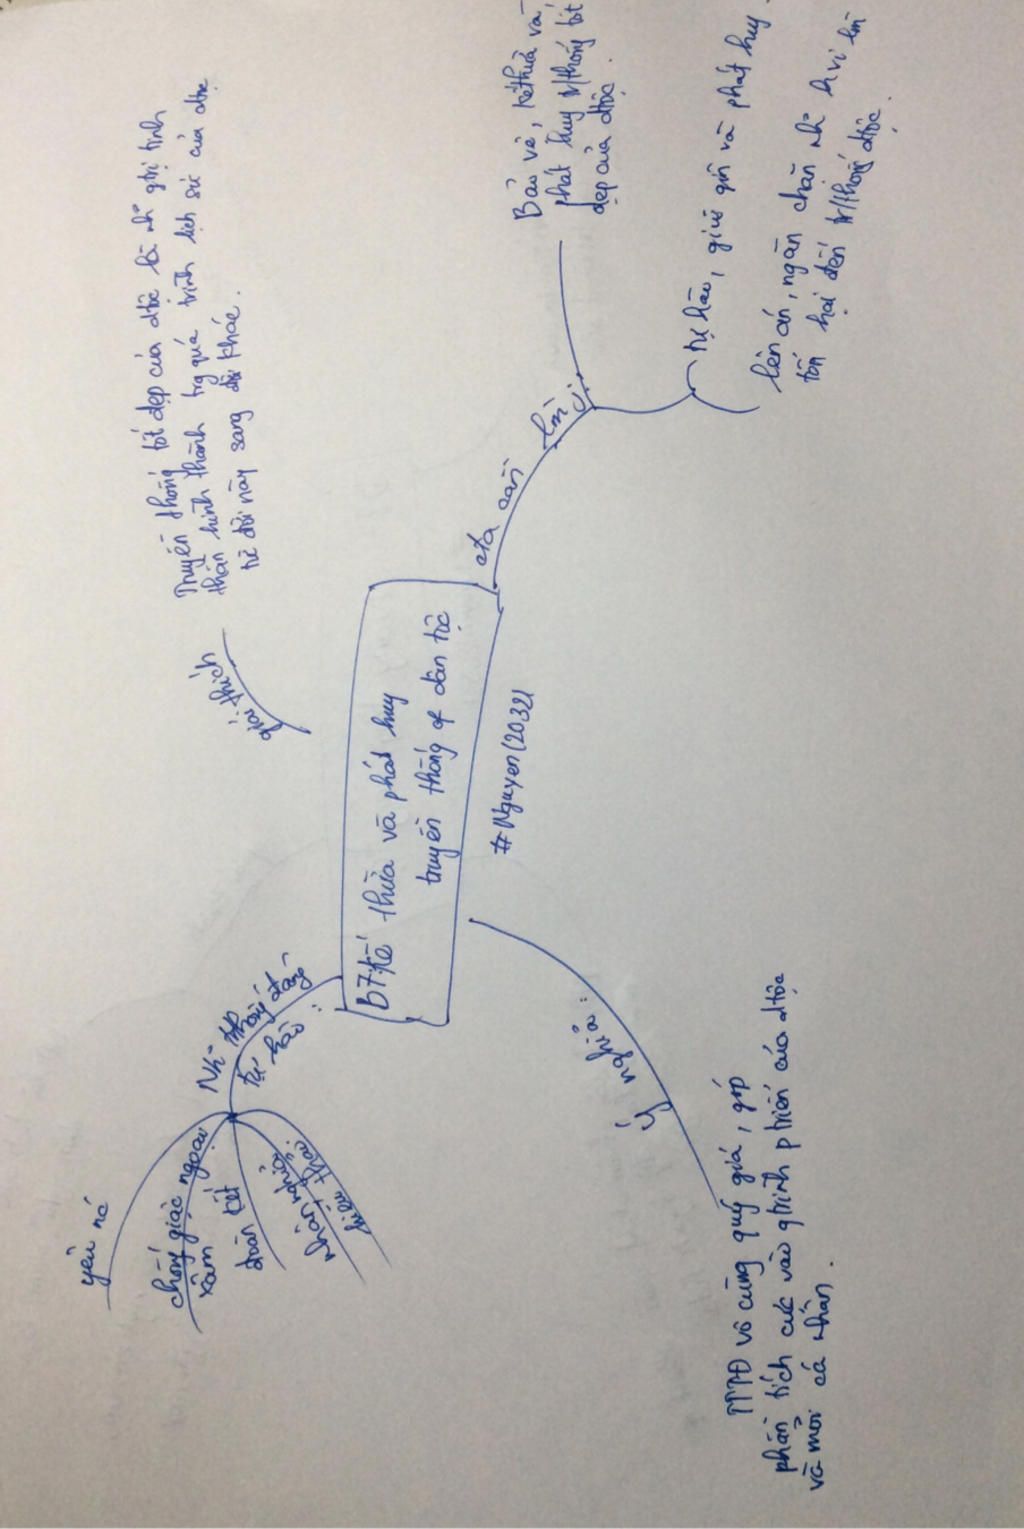 B7: Kế thừa và phát huy
truyền thống of dân tộc
#Nguyen(2032)
giải thích
Truyền thống tốt đẹp của dtộc là nh~ gtrị tinh
thần hình thành trg quá trình lịch sử của dtộc
từ đời này sang đời khác.
cta cần làm:
Bảo vệ, kế thừa và
phát huy tr/thống tốt
đẹp của dtộc.
tự hào, giữ gìn và phát huy.
lên án, ngăn chặn nh~ h.vi làm
tổn hại đến tr/thống dtộc.
ý nghĩa:
TTTĐ vô cùng quý giá, góp
phần tích cực vào qtrình ptriển của dtộc
và mỗi cá nhân.
Nh~ tr/thống đáng
tự hào:
yêu nc
chống giặc ngoại
xâm
đoàn kết
nhân nghĩa
hiếu thảo